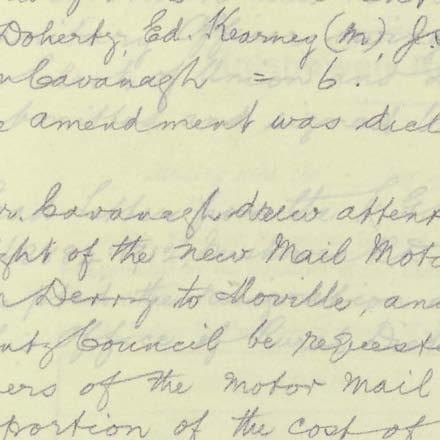 Doherty, Ed. Kearney (M), J.
Cavanagh = 6.
e amendment was decl
r. Cavanagh drew attent
ght of the new Mail Moto
n Derry to Moville, an
nty Council be request
ers of the Motor Mail
portion of the cost of